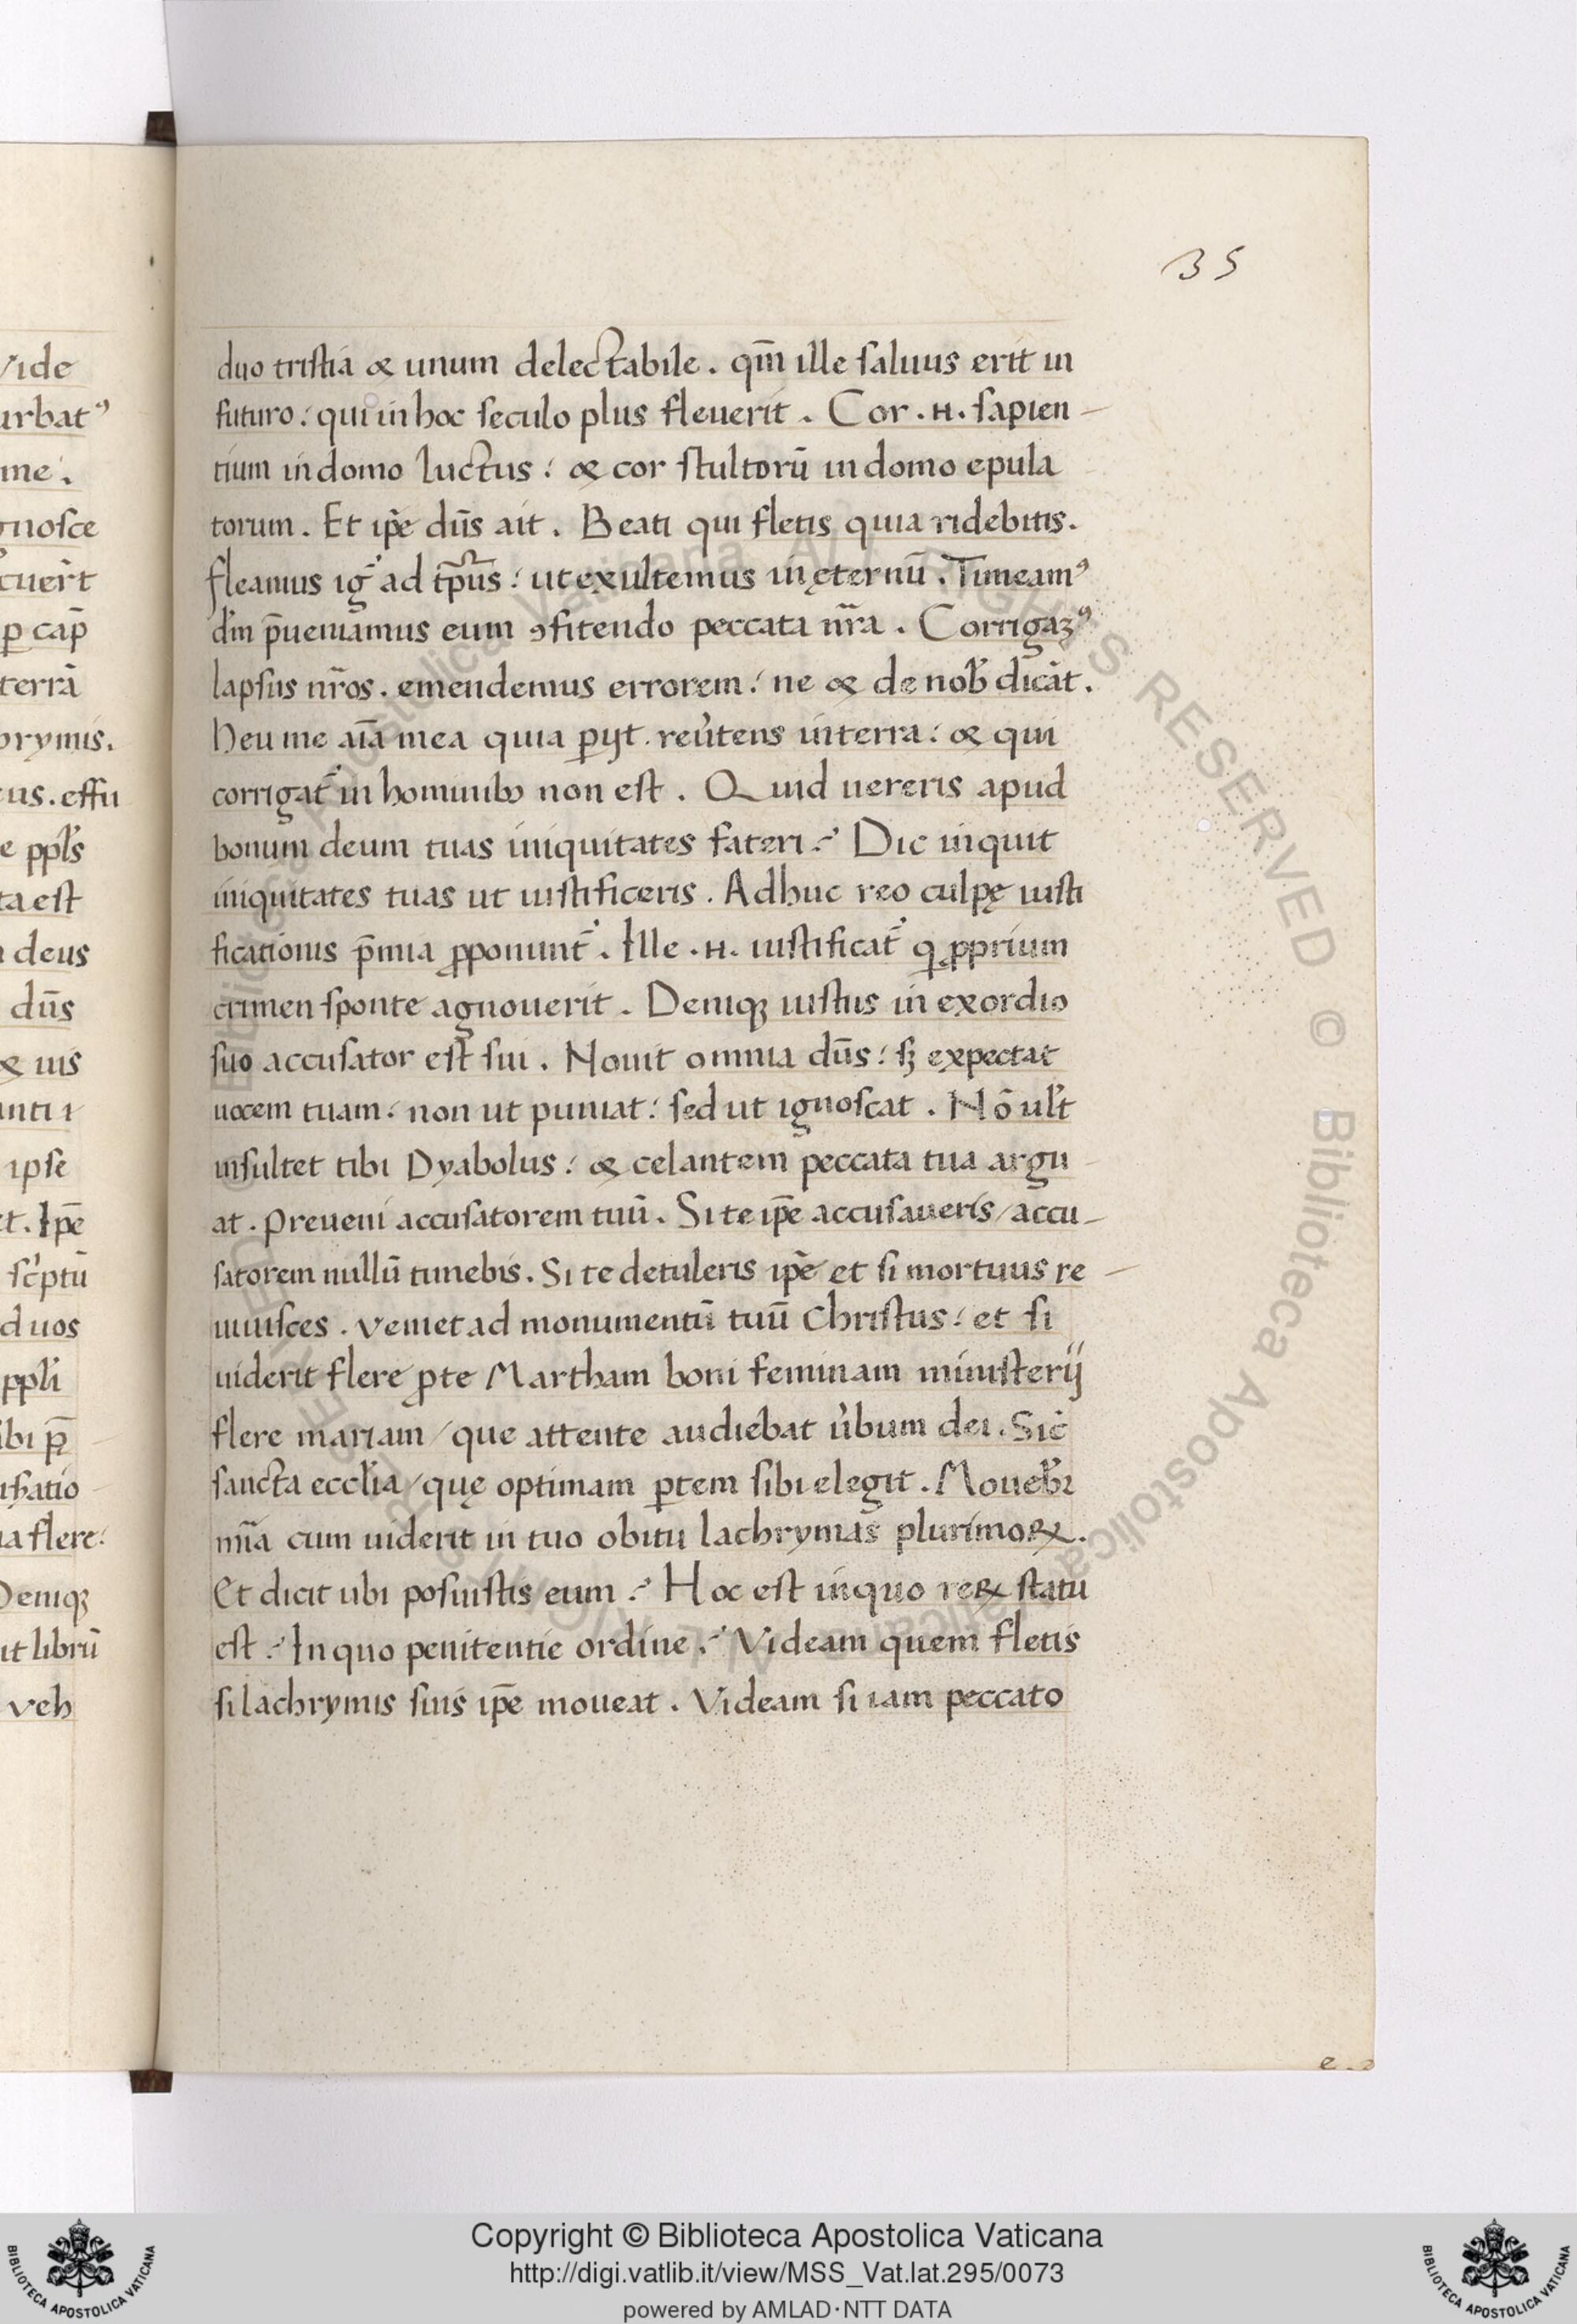 35
duo tristia & unum delectabile. qm̄ ille saluus erit in
futuro: qui in hoc seculo plus fleuerit. Cor .н. sapien-
tium in domo luctus: & cor stultorū in domo epula
torum. Et ip̄e dn̄s ait. Beati qui fletis quia ridebitis.
fleamus ig̃ ad tp̄us: ut exultemus in ęternū. Timeamꝰ
dm̄ p̄ueniamus eum ꝯfitendo peccata nr̄a. Corrigamꝰ
lapsus nr̄os. emendemus errorem: ne & de nob̄ dicāt.
Heu me aīa mea quia ꝑijt reu̓tens in terra: & qui
corrigat̃ in hominibꝫ non est. Quid uereris apud
bonum deum tuas iniquitates fateri? Dic inquit
iniquitates tuas ut iustificeris. Adhuc reo culpę iusti
ficationis p̄mia ꝓponunt̃. Ille .н. iustificat̃ q ꝓprium
crimen sponte agnouerit. Deniqꝫ iustus in exordio
suo accusator est sui. Nouit omnia dn̄s: sꝫ expectat
uocem tuam: non ut puniat: sed ut ignoscat. Nō ult̄
insultet tibi Dyabolus: & celantem peccata tua argu-
at. Preueni accusatorem tuū. Si te ip̄e accusaueris/accu-
satorem nullū timebis. Si te detuleris ip̄e et si mortuus re-
uiuisces. Veniet ad monumentū tuū Christus: et si
uiderit flere ꝓ te Martham boni feminam ministerij
flere mariam/que attente audiebat u̓bum dei. Sic
sancta eccl̄ia/quę optimam ꝑtem sibi elegit. Moueb̄r
mīa cum uiderit in tuo obitu lachrymas plurimoꝝ.
Et dicit ubi posuistis eum? Hoc est in quo reoꝝ statu
est? In quo penitentie ordine? Videam quem fletis
si lachrymis suis ip̄e moueat. Videam si iam peccato
Vide
urbatꝰ
me.
gnosce
cuer̄t
ꝑ cap̄
terrā
brymis.
us. effu
e ppl̄s
ta est
deus
dn̄s
& uis
ipse
t. Ip̄e
sc̓ptū
d uos
ppl̄i
a flere:
Deniqꝫ
it librū
veh
© Biblioteca Apostolica Vaticana ALL RIGHTS RESERVED © Biblioteca Apostolica Vaticana ALL RIGHTS RESERVED
BIBLIOTECA APOSTOLICA VATICANA
Copyright © Biblioteca Apostolica Vaticana
http://digi.vatlib.it/view/MSS_Vat.lat.295/0073
powered by AMLAD·NTT DATA
BIBLIOTECA APOSTOLICA VATICANA